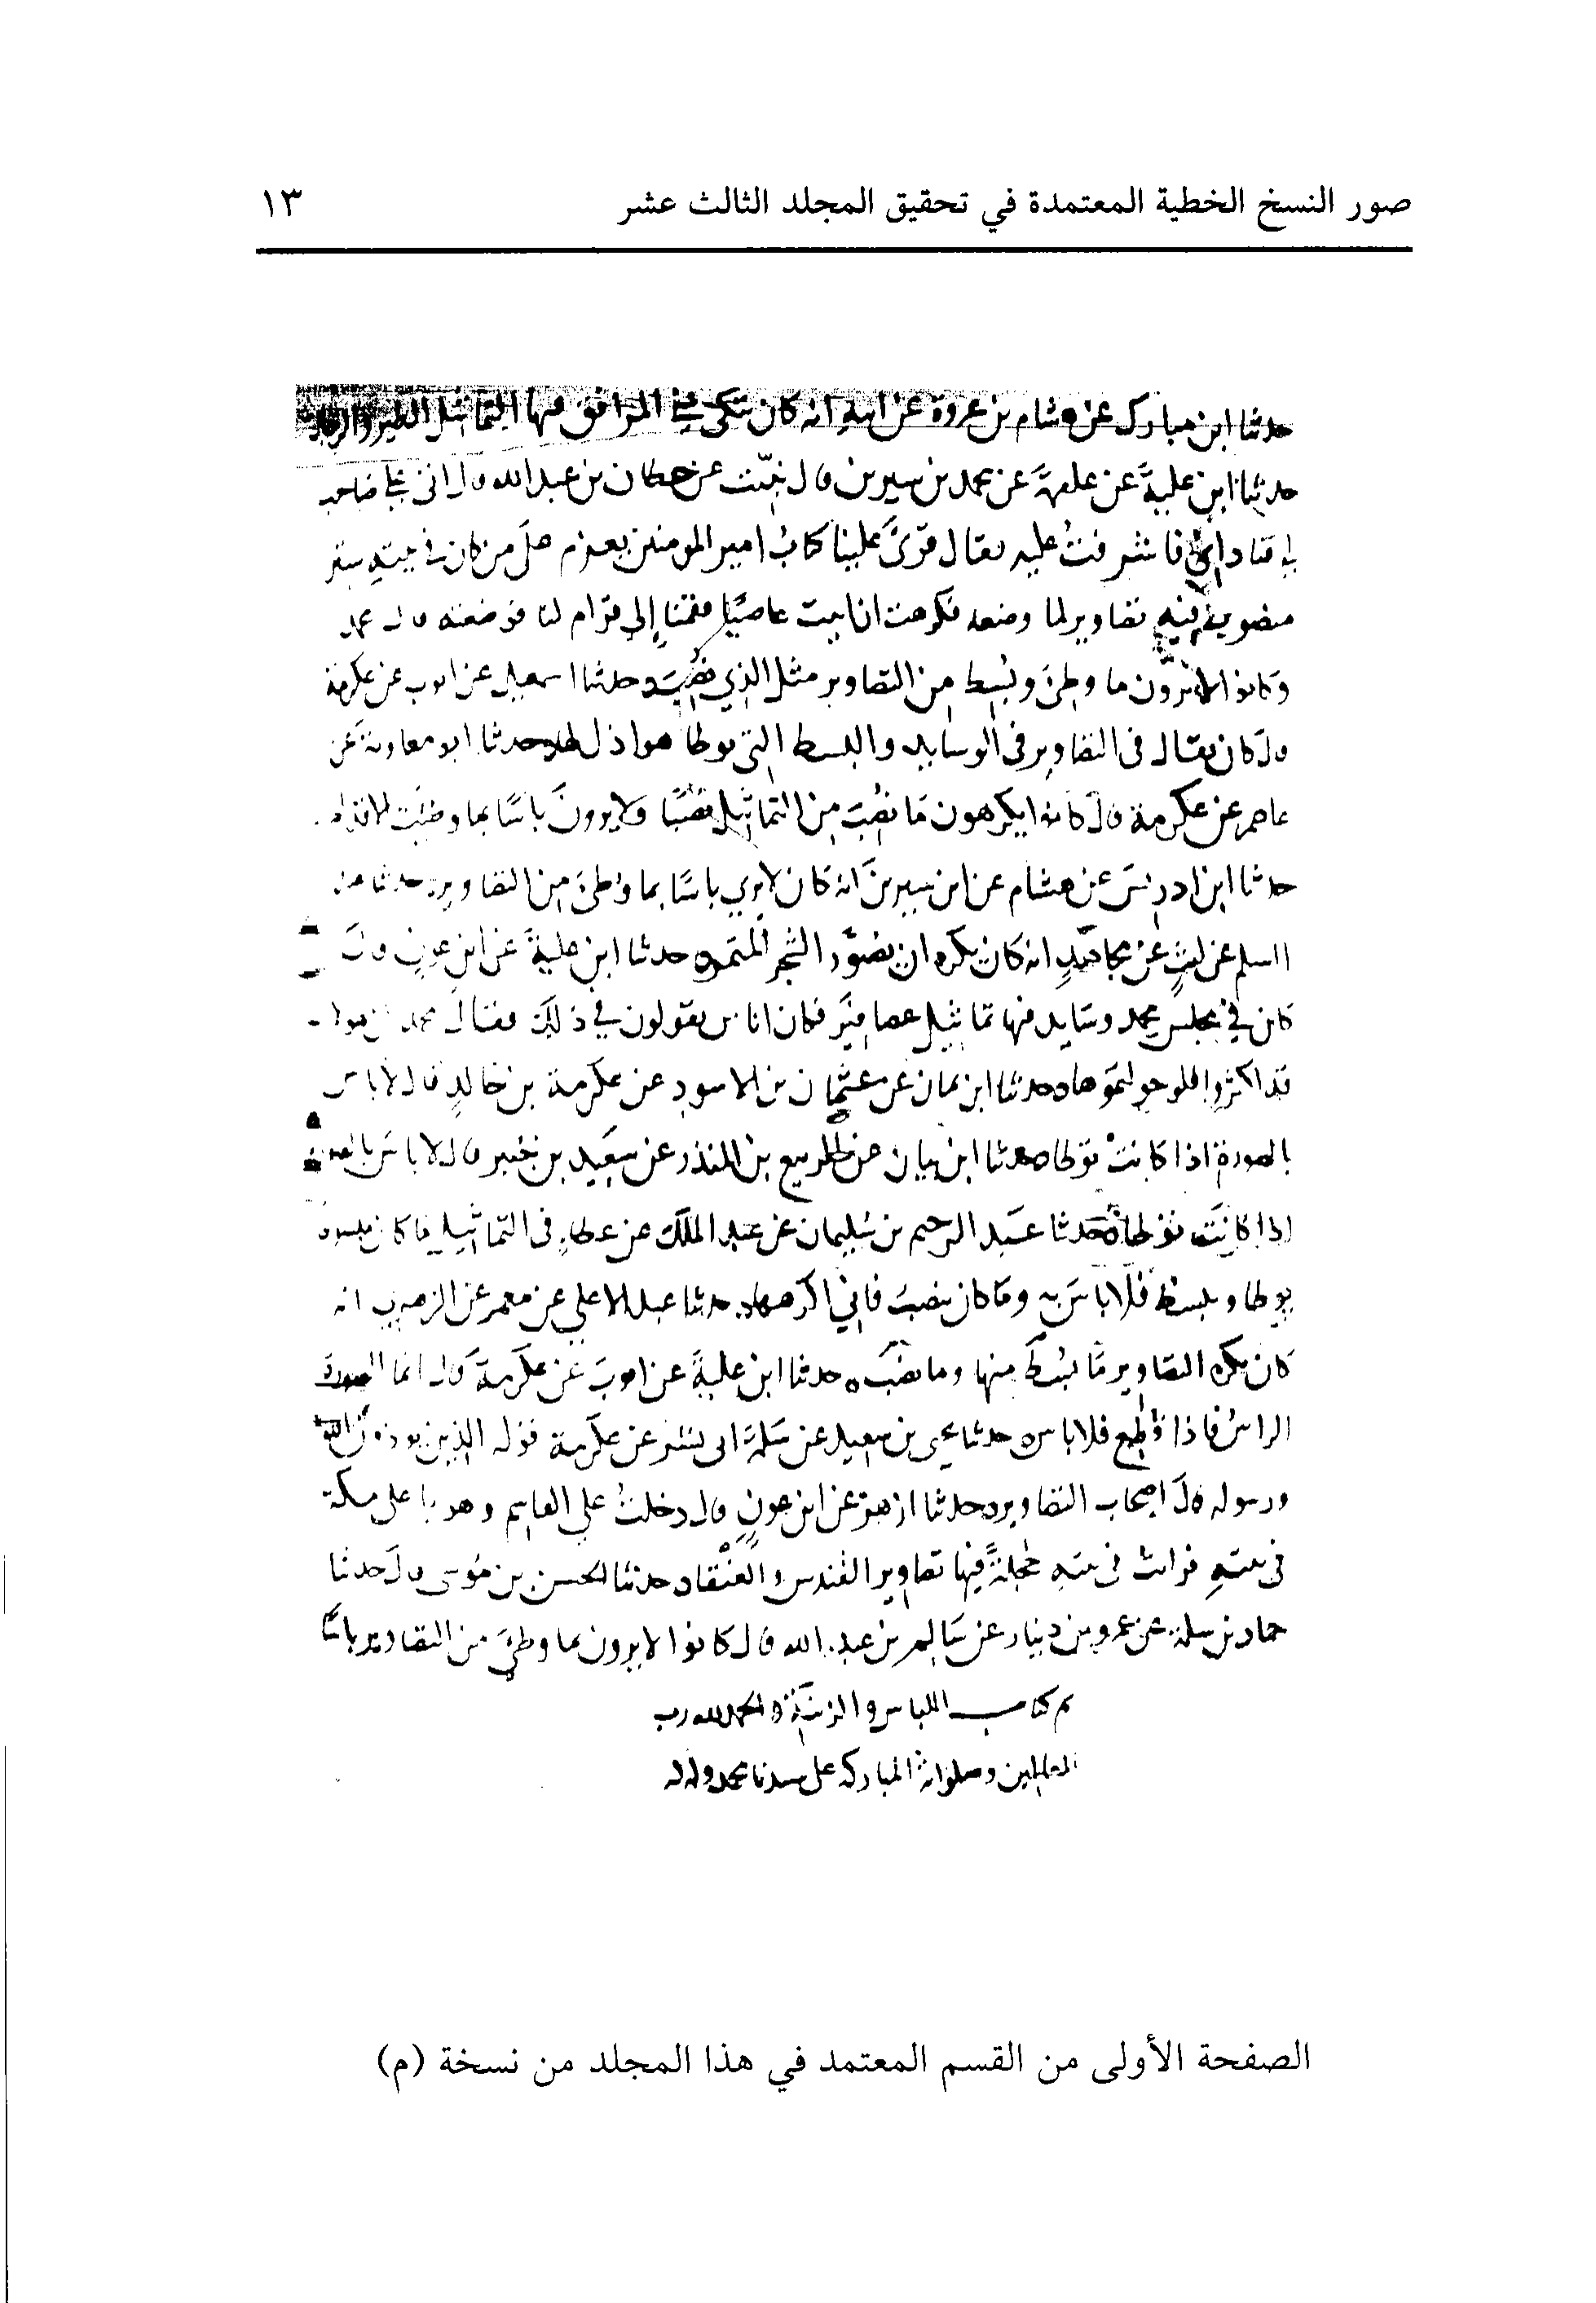 صور النسخ الخطية المعتمدة في تحقيق المجلد الثالث عشر ١٣
حدثنا ابن مبارك عن هشام بن عروة عن ابيه انه كان يتكئ على المرافق فيها التماثيل الطير والرجال
حدثنا ابن علية عن علقمة عن محمد بن سيرين قال نبئت عن حطان بن عبد الله قال اتى علي صاحب
لي فناداني فاشرفت عليه فقال قرئ علينا كتاب امير المومنين يعزم على من كان في بيته ستر
منصوب فيه تصاوير لما وضعه فكرهت ان ابيت عاصيا فقمنا إلى قرام لنا فوضعته قال محمد
وكانوا لا يرون ما وطئ وبسط من التصاوير مثل الذي نصب حدثنا اسمعيل عن ايوب عن عكرمة
قال كان يقال في التصاوير في الوسايد والبسط التي توطا هو اذل لها حدثنا ابو معاوية عن
عاصم عن عكرمة قال كانوا يكرهون ما نصب من التماثيل نصبا ولا يرون باسا بما وطئت الاقدام
حدثنا ابن ادريس عن هشام عن ابن سيرين انه كان لا يرى باسا بما وطئ من التصاوير حدثنا عبد
السلم عن ليث عن مجاهد انه كان يكره ان يصور الشجر المثمر حدثنا ابن علية عن ابن عون قال
كان في مجلس محمد وسايد فيها تماثيل عصافير فكان اناس يقولون في ذلك فقال محمد ان هولا
قد اكثروا فلو حولتموها حدثنا ابن يمان عن عثمان بن الاسود عن عكرمة بن خالد قال لا باس
بالصورة اذا كانت توطا حدثنا ابن يمان عن الربيع بن المنذر عن سعيد بن جبير قال لا باس بالصورة
اذا كانت توطا حدثنا عبد الرحيم بن سليمان عن عبد الملك عن عطاء في التماثيل ما كان مبسوطا
يوطا ويبسط فلا باس به وما كان ينصب فاني اكرهها حدثنا عبد الاعلى عن معمر عن الزهري انه
كان يكره التصاوير ما بسط منها وما نصب حدثنا ابن علية عن ايوب عن عكرمة قال انما الصورة
الراس فاذا قطع فلا باس حدثنا يحيى بن سعيد عن سلمة ابى بشر عن عكرمة قوله الذين يوذون الله
ورسوله قال اصحاب التصاوير حدثنا ازهر عن ابن عون قال دخلت على القاسم وهو باعلى مكة
في بيته فرايت في بيته حجلة فيها تصاوير القندس والعنقا حدثنا الحسن بن موسى قال حدثنا
حماد بن سلمة عن عمرو بن دينار عن سالم بن عبد الله قال كانوا لا يرون بما وطئ من التصاوير باسا
تم كتاب اللباس والزينة والحمد لله رب
العالمين وصلواته المباركه على سيدنا محمد واله
الصفحة الأولى من القسم المعتمد في هذا المجلد من نسخة (م)